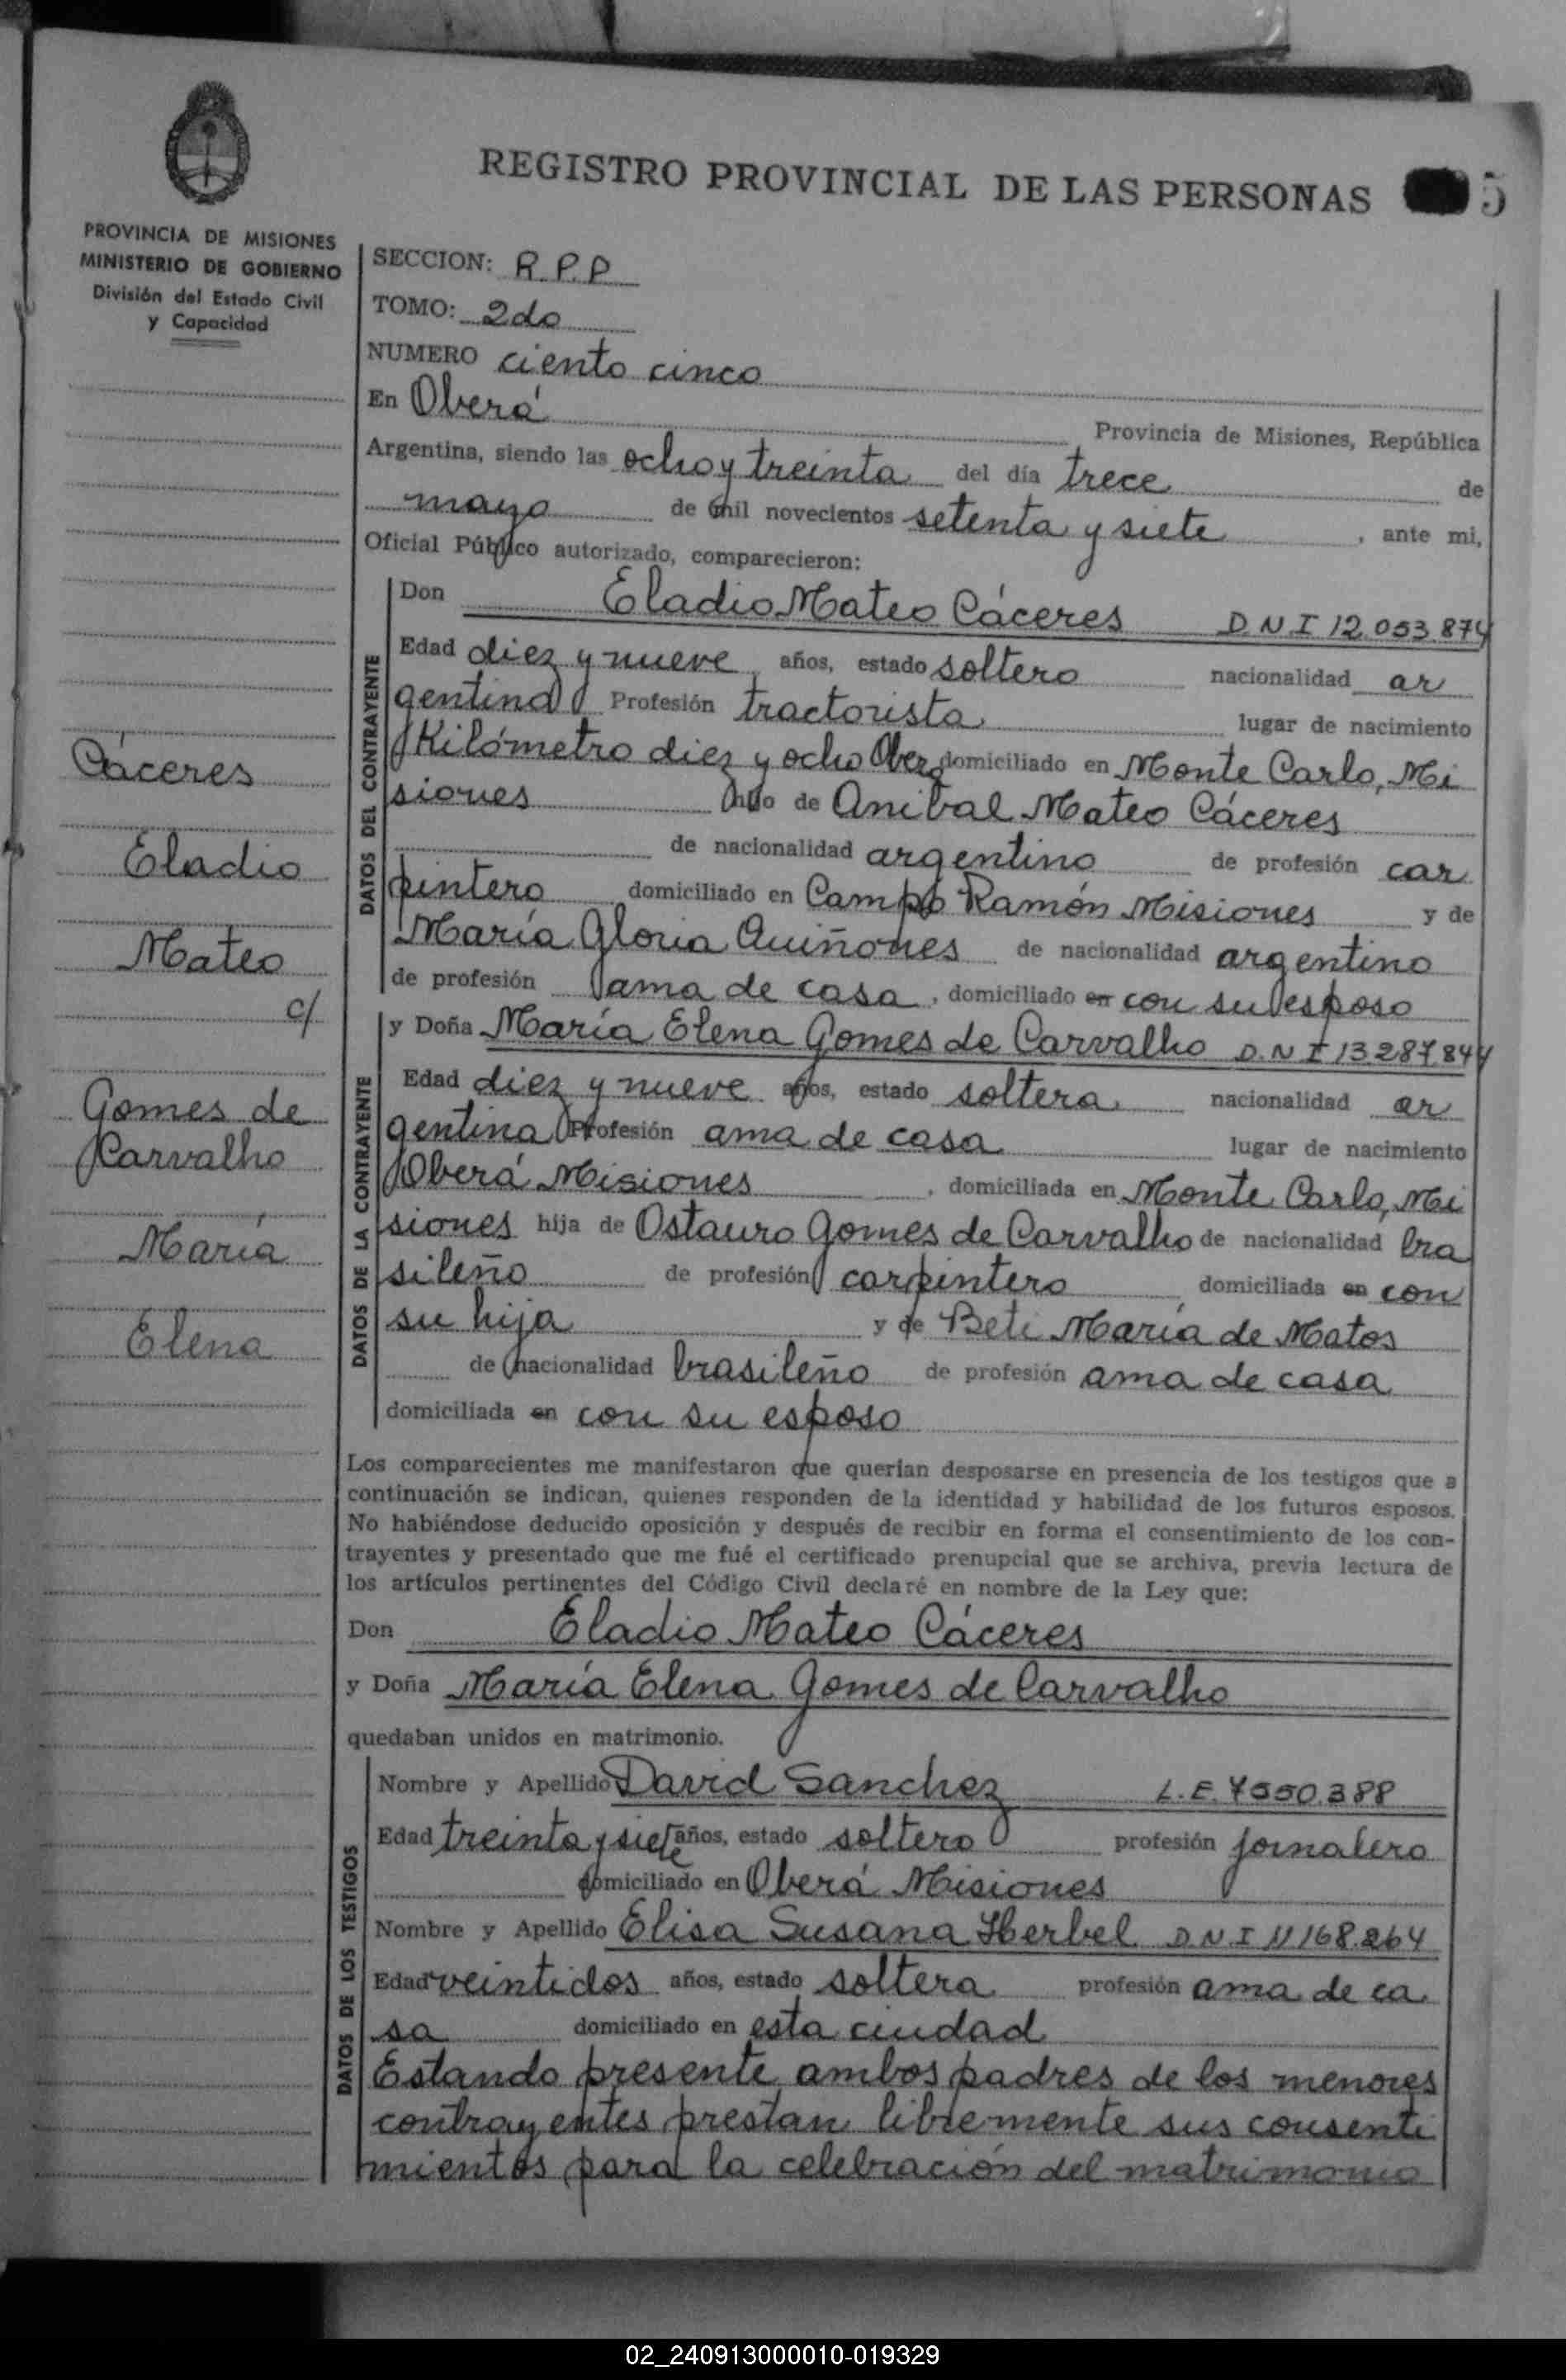 REGISTRO PROVINCIAL DE LAS PERSONAS 5
PROVINCIA DE MISIONES
MINISTERIO DE GOBIERNO
División del Estado Civil
y Capacidad
Cáceres
Eladio
Mateo
c/
Gomes de
Carvalho
María
Elena
SECCION: R.P.P
TOMO: 2do
NUMERO ciento cinco
En Oberá Provincia de Misiones, República
Argentina, siendo las ocho y treinta del día trece de
mayo de mil novecientos setenta y siete, ante mi,
Oficial Público autorizado, comparecieron:
DATOS DEL CONTRAYENTE
Don Eladio Mateo Cáceres D.N.I 12.053.874
Edad diez y nueve años, estado soltero nacionalidad ar
gentina Profesión tractorista lugar de nacimiento
Kilómetro diez y ocho Oberá domiciliado en Monte Carlo, Mi
siones hijo de Anibal Mateo Cáceres
de nacionalidad argentino de profesión car
pintero domiciliado en Campo Ramón Misiones y de
María Gloria Quiñones de nacionalidad argentino
de profesión ama de casa, domiciliado en con su esposo
DATOS DE LA CONTRAYENTE
y Doña María Elena Gomes de Carvalho D.N.I 13.287.844
Edad diez y nueve años, estado soltera nacionalidad ar
gentina Profesión ama de casa lugar de nacimiento
Oberá Misiones, domiciliada en Monte Carlo, Mi
siones hija de Ostauro Gomes de Carvalho de nacionalidad bra
sileño de profesión carpintero domiciliada en con
su hija y de Beti María de Matos
de nacionalidad brasileño de profesión ama de casa
domiciliada en con su esposo
Los comparecientes me manifestaron que querían desposarse en presencia de los testigos que a
continuación se indican, quienes responden de la identidad y habilidad de los futuros esposos.
No habiéndose deducido oposición y después de recibir en forma el consentimiento de los con-
trayentes y presentado que me fué el certificado prenupcial que se archiva, previa lectura de
los artículos pertinentes del Código Civil declaré en nombre de la Ley que:
Don Eladio Mateo Cáceres
y Doña María Elena Gomes de Carvalho
quedaban unidos en matrimonio.
DATOS DE LOS TESTIGOS
Nombre y Apellido David Sanchez L.E. 7550.388
Edad treinta y siete años, estado soltero profesión jornalero
domiciliado en Oberá Misiones
Nombre y Apellido Elisa Susana Herbel D.N.I 11168.264
Edad veintidos años, estado soltera profesión ama de ca
sa domiciliado en esta ciudad
Estando presente ambos padres de los menores
contrayentes prestan libremente sus consenti
mientos para la celebración del matrimonio
02_240913000010-019329